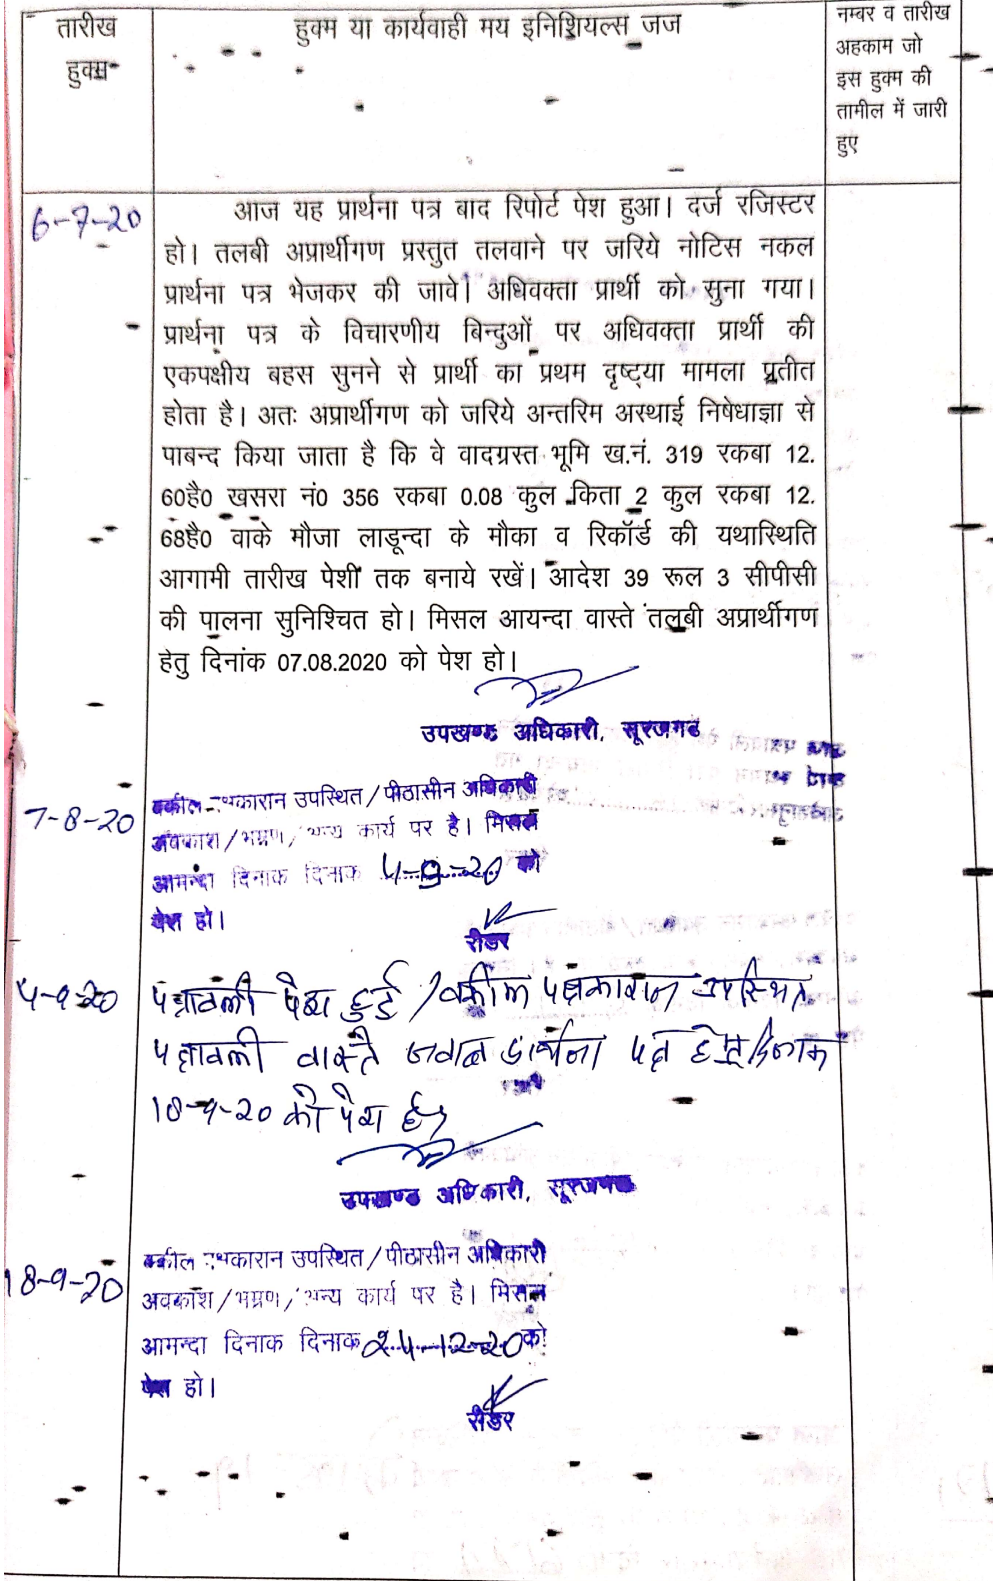 तारीख
हुक्म
हुक्म या कार्यवाही मय इनिशियल्स जज
नम्बर व तारीख
अहकाम जो
इस हुक्म की
तामील में जारी
हुए
6-7-20
आज यह प्रार्थना पत्र बाद रिपोर्ट पेश हुआ। दर्ज रजिस्टर
हो। तलबी अप्रार्थीगण प्रस्तुत तलवाने पर जरिये नोटिस नकल
प्रार्थना पत्र भेजकर की जावे। अधिवक्ता प्रार्थी को सुना गया।
प्रार्थना पत्र के विचारणीय बिन्दुओं पर अधिवक्ता प्रार्थी की
एकपक्षीय बहस सुनने से प्रार्थी का प्रथम दृष्ट्या मामला प्रतीत
होता है। अतः अप्रार्थीगण को जरिये अन्तरिम अस्थाई निषेधाज्ञा से
पाबन्द किया जाता है कि वे वादग्रस्त भूमि ख.नं. 319 रकबा 12.
60है0 खसरा नं0 356 रकबा 0.08 कुल किता 2 कुल रकबा 12.
68है0 वाके मौजा लाडून्दा के मौका व रिकॉर्ड की यथास्थिति
आगामी तारीख पेशी तक बनाये रखें। आदेश 39 रूल 3 सीपीसी
की पालना सुनिश्चित हो। मिसल आयन्दा वास्ते तलबी अप्रार्थीगण
हेतु दिनांक 07.08.2020 को पेश हो।
उपखण्ड अधिकारी, सूरजगढ
7-8-20
वकील उपस्थित/पीठासीन अधिकारी
अवकाश/भम्रण/अन्य कार्य पर है। मिसल
आमन्दा दिनाक दिनाक 4-9-20 को
पेश हो।
रीडर
4-9-20
पत्रावली पेश हुई/वकील पक्षकारान उपस्थित
पत्रावली वास्ते जवाब प्रार्थना पत्र हेतु दिनांक
18-9-20 को पेश हो
उपखण्ड अधिकारी, सूरजगढ
18-9-20
वकील उपस्थित/पीठासीन अधिकारी
अवकाश/भम्रण/अन्य कार्य पर है। मिसल
आमन्दा दिनाक दिनाक 24-12-20 को
पेश हो।
रीडर